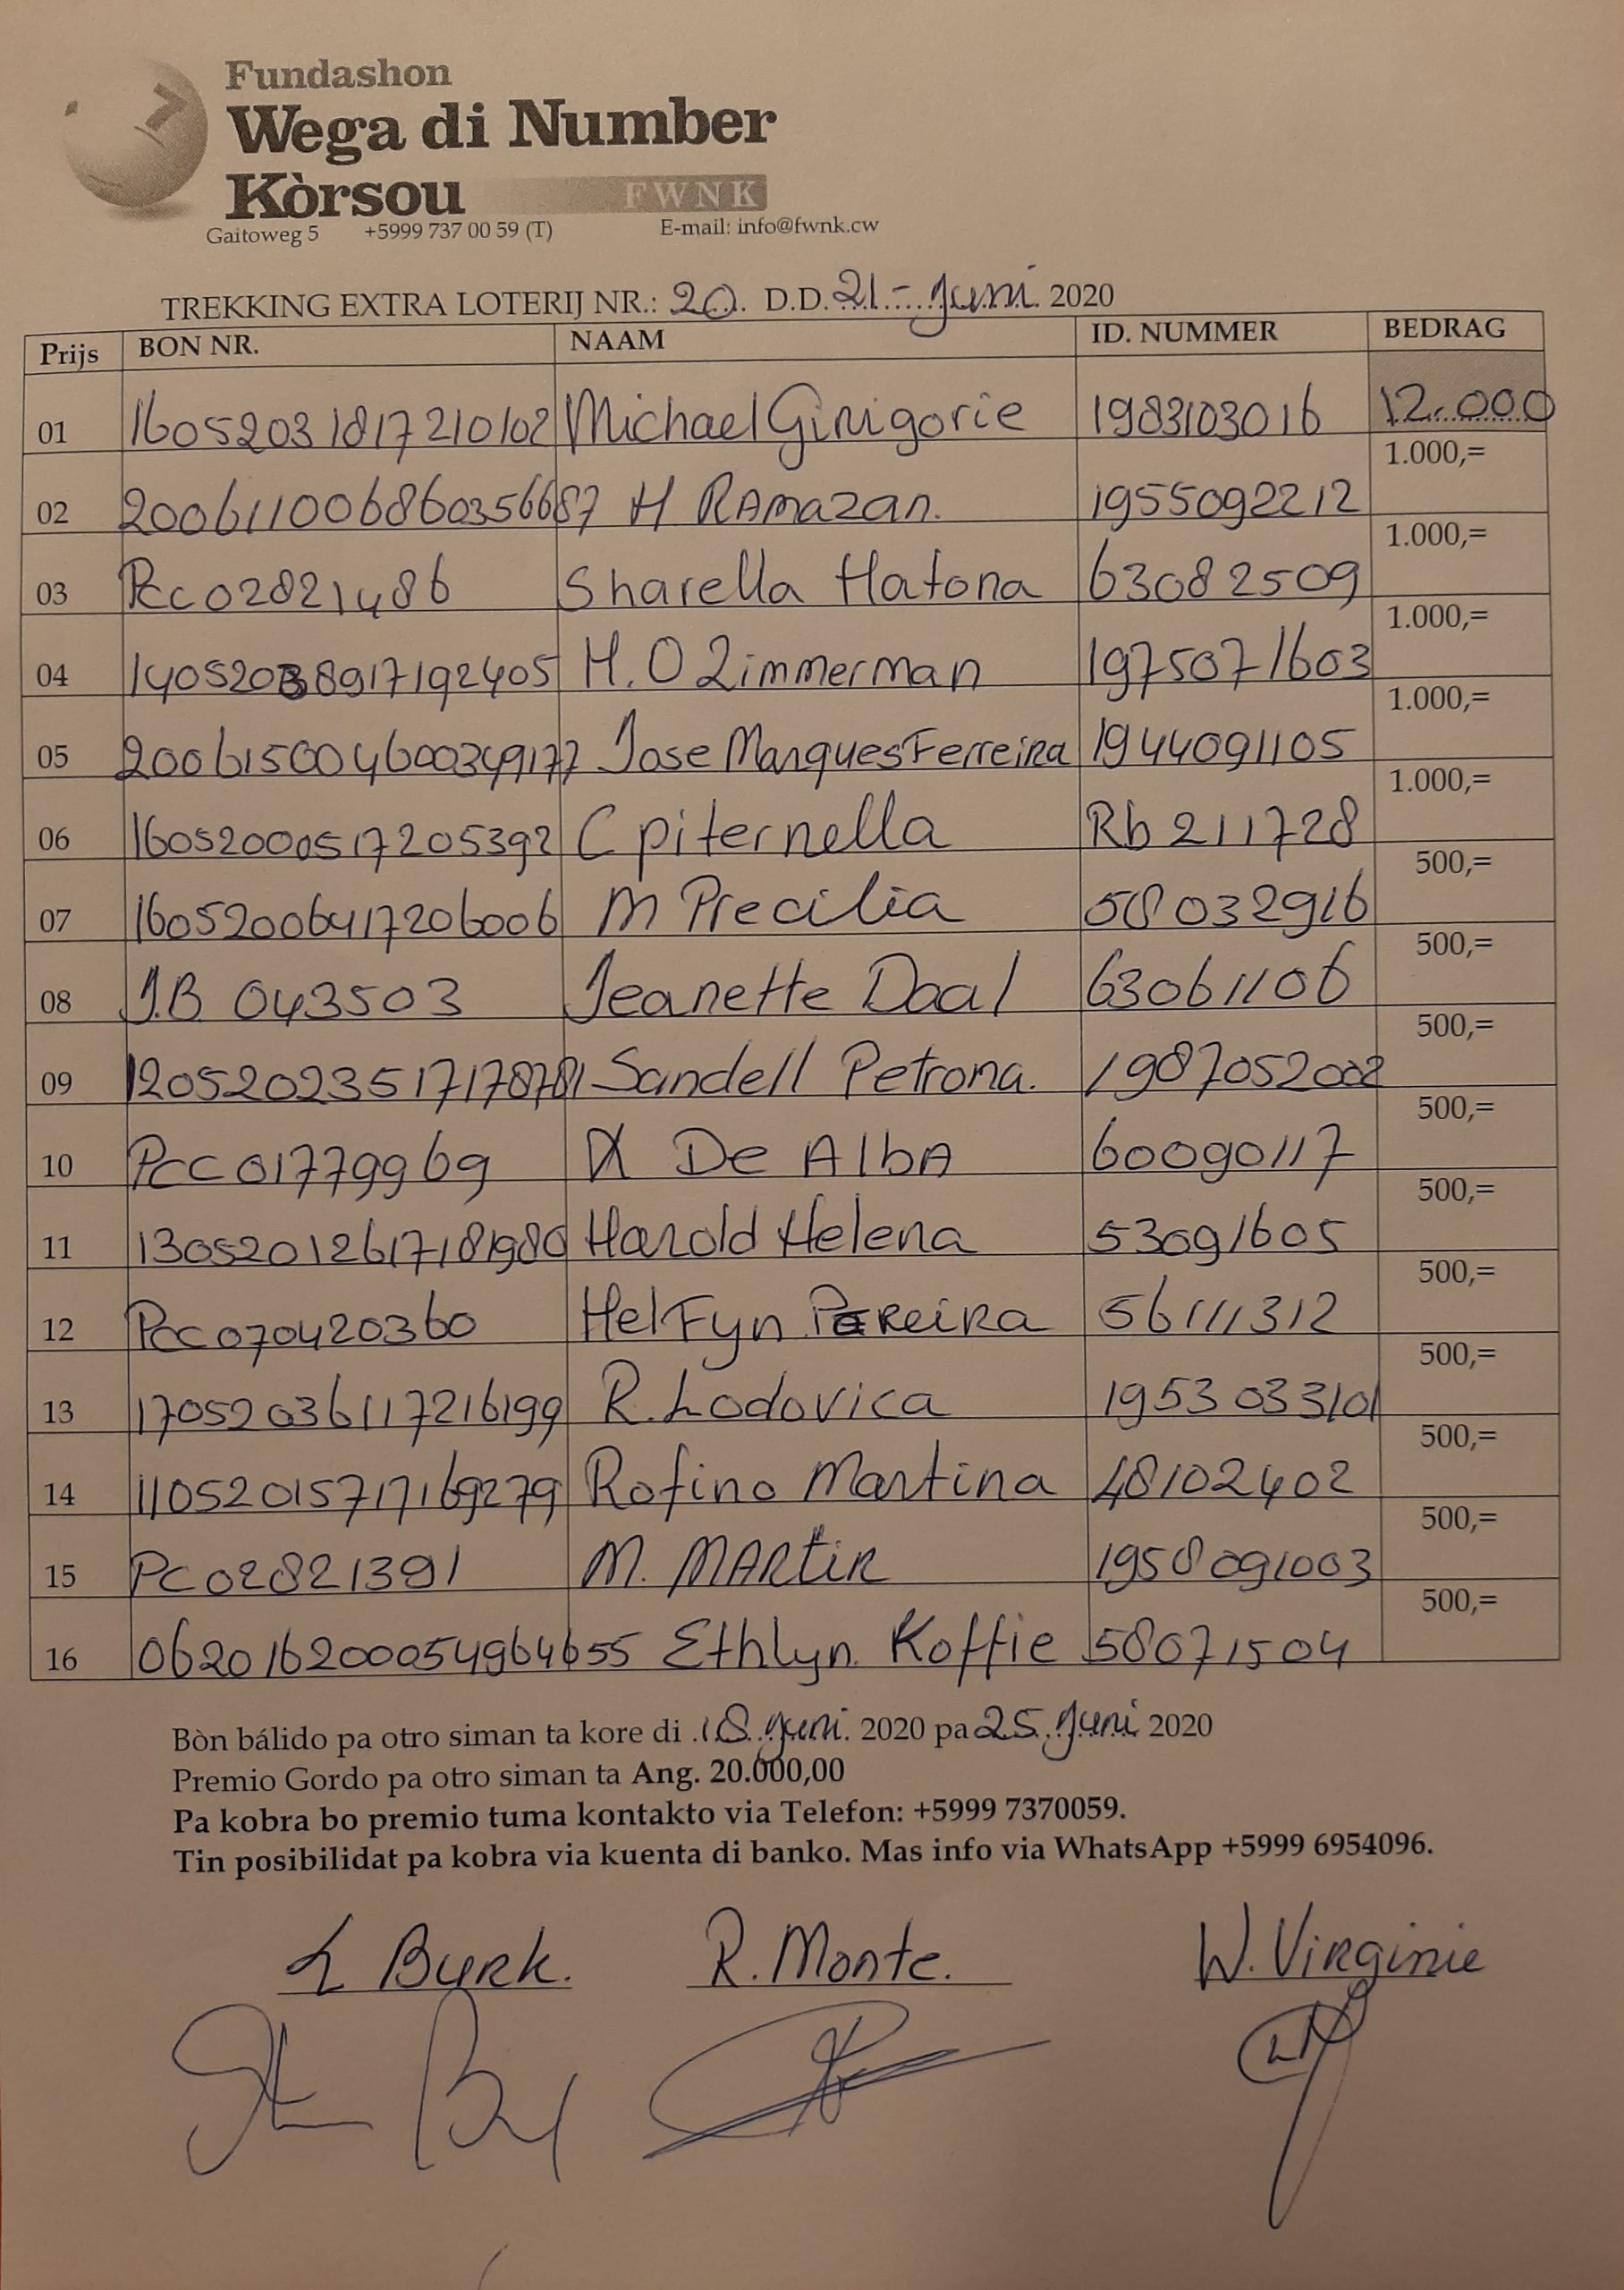 Fundashon
Wega di Number
Kòrsou FWNK
Gaitoweg 5 +5999 737 00 59 (T) E-mail: info@fwnk.cw
TREKKING EXTRA LOTERIJ NR.: 20 D.D. 21-Juni 2020
Prijs BON NR. NAAM ID. NUMMER BEDRAG
01 16052031817210102 Michael Girigorie 1983103016 12.000
02 200611006860356687 H RAmazan. 1955092212 1.000,=
03 Pcc02821486 Sharella Hatona 63082509 1.000,=
04 14052038917192405 H.O Zimmerman 1975071603 1.000,=
05 2006150046000349177 Jose Marques Ferreira 1944091105 1.000,=
06 16052000517205392 C piternella Rb 211728 1.000,=
07 16052006417206006 M Precilia 58032916 500,=
08 J.B 043503 Jeanette Daal 63061106 500,=
09 12052023517178781 Sandell Petrona. 1987052002 500,=
10 PCC01779969 De AlbA 60090117 500,=
11 13052012617181980 Harold Helena 53091605 500,=
12 Pcc070420360 HelFyn PeReiRa 56111312 500,=
13 17052036117216199 R. Lodovica 1953033101 500,=
14 11052015717169279 Rofino Martina 48102402 500,=
15 PC02821391 M. MARtiR 1958091003 500,=
16 062016200054964655 Ethlyn Koffie 58071504 500,=
Bòn bálido pa otro siman ta kore di 18 Juni 2020 pa 25 Juni 2020
Premio Gordo pa otro siman ta Ang. 20.000,00
Pa kobra bo premio tuma kontakto via Telefon: +5999 7370059.
Tin posibilidat pa kobra via kuenta di banko. Mas info via WhatsApp +5999 6954096.
L Burk. R. Monte. W. Virginie